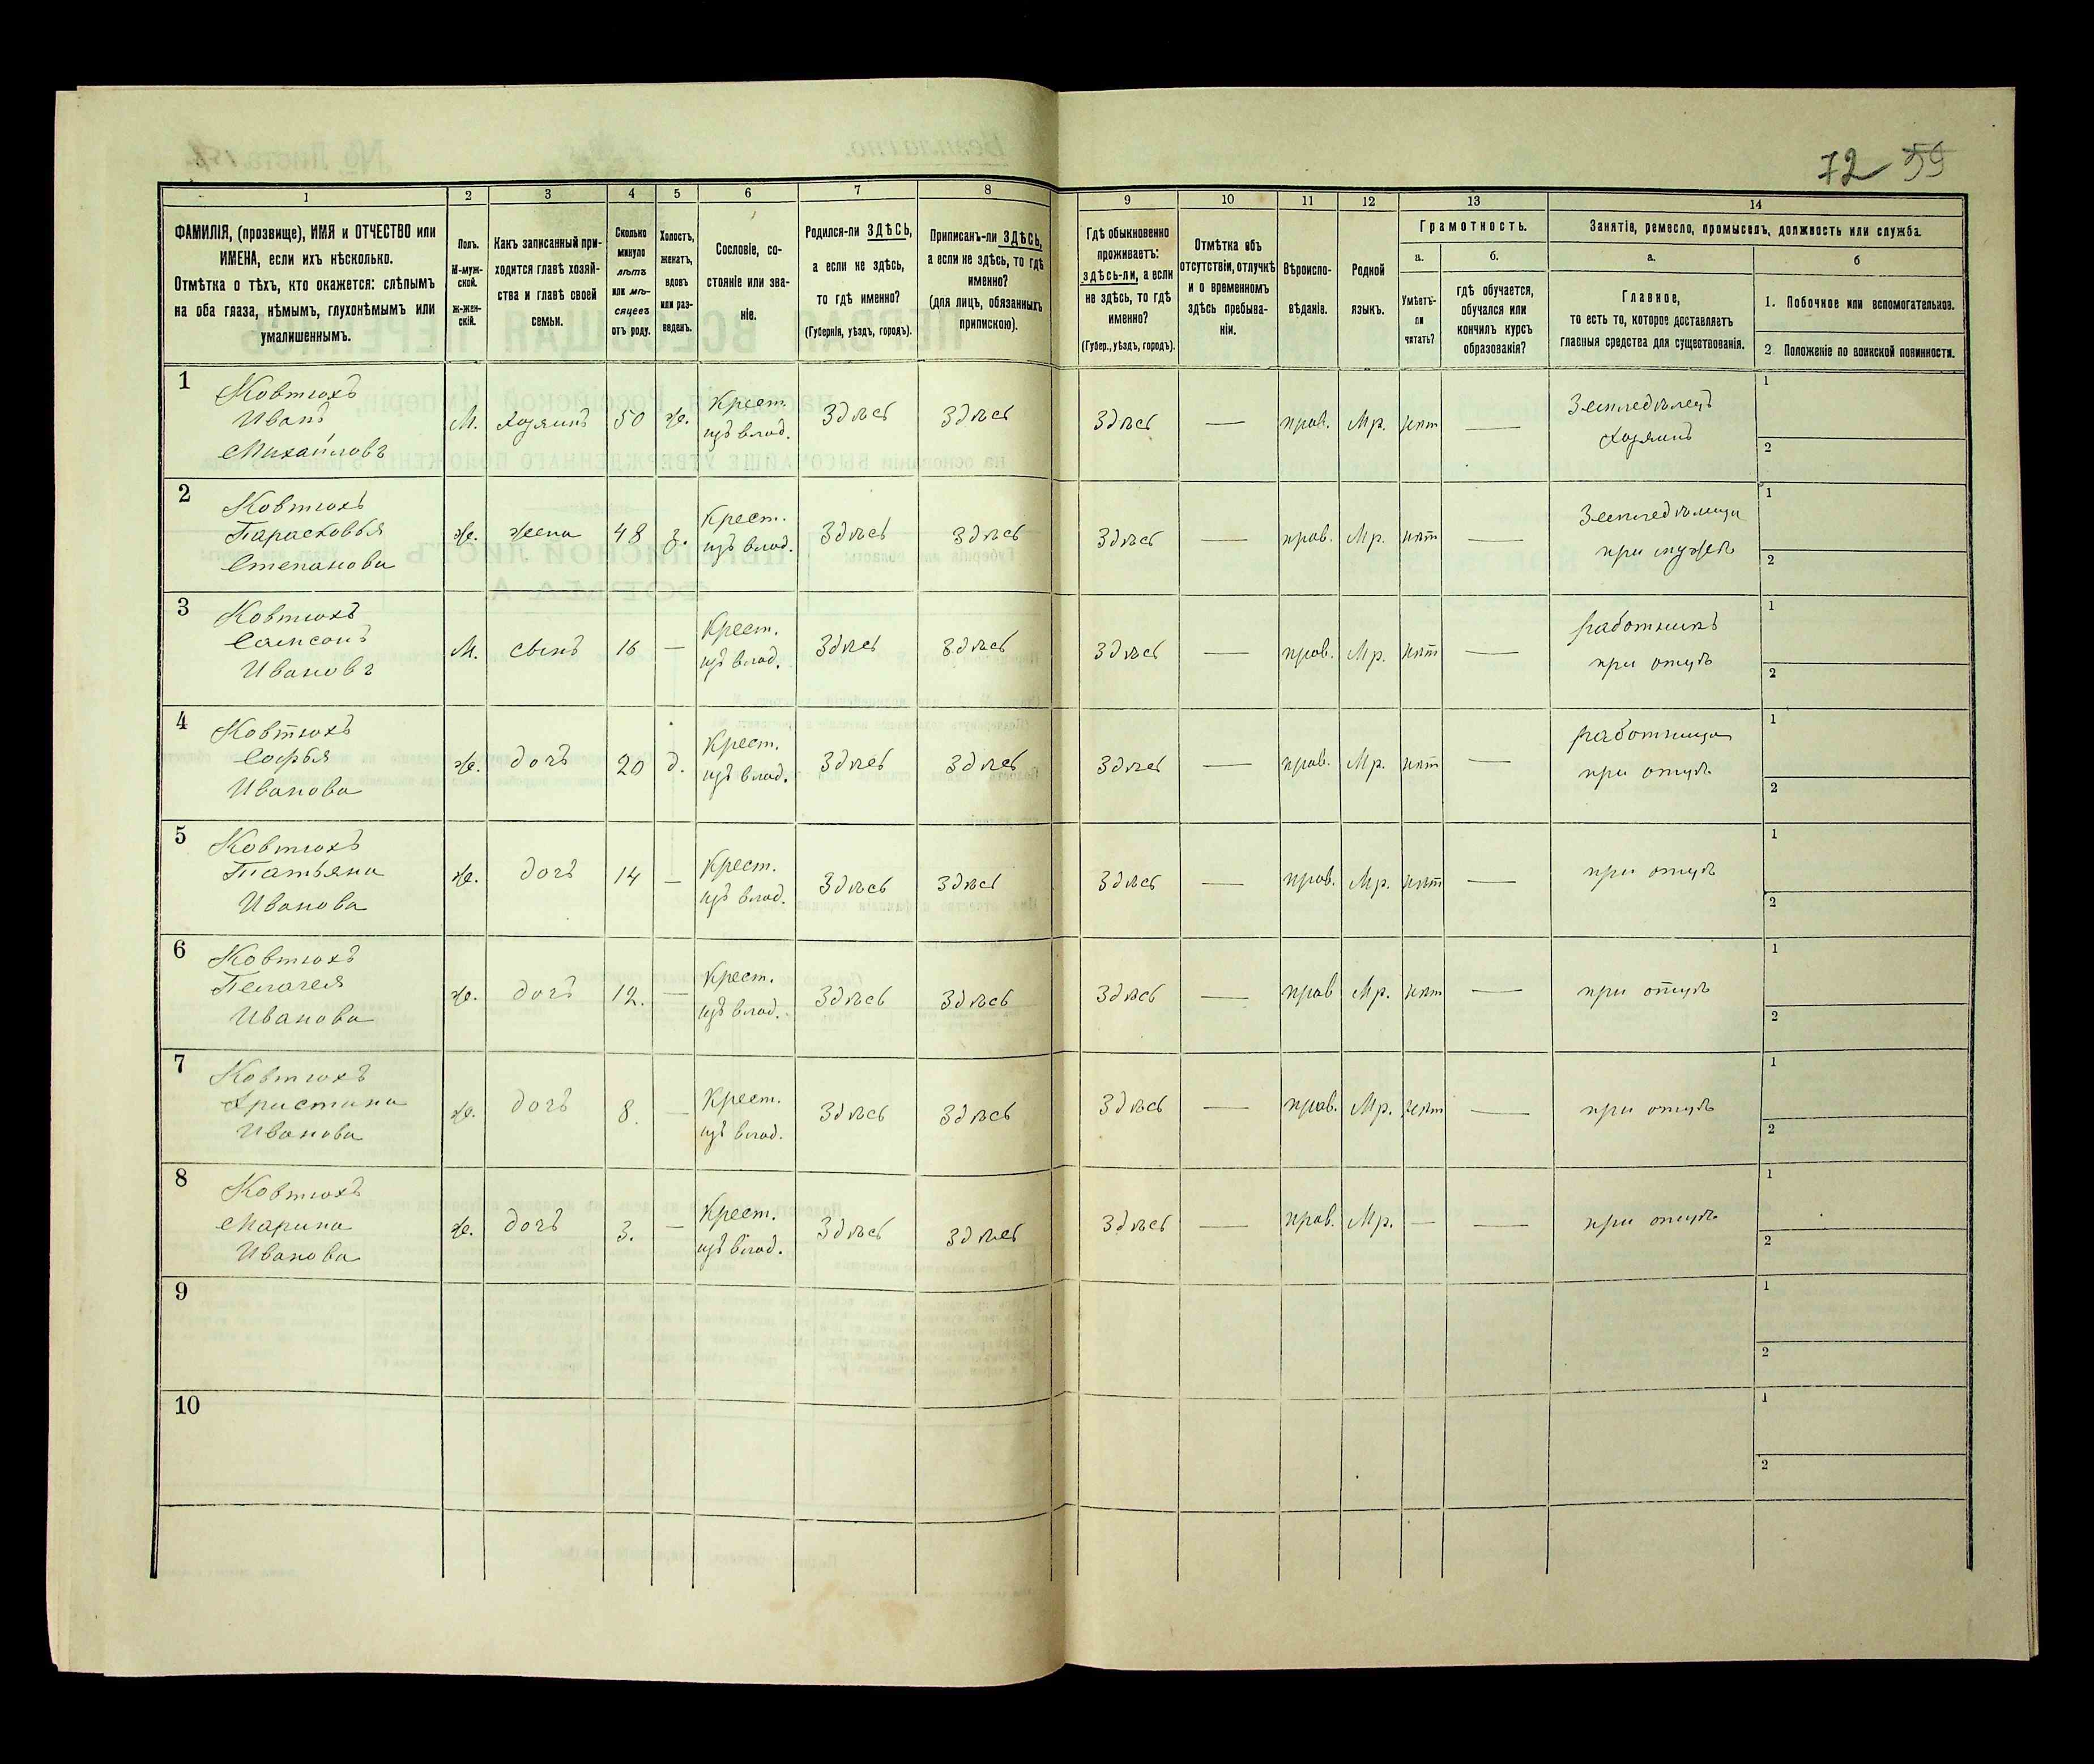 72 59
1
2
3
4
5
6
7
8
9
10
11
12
13
14
ФАМИЛІЯ, (прозвище), ИМЯ и ОТЧЕСТВО или
ИМЕНА, если ихъ нѣсколько.
Отмѣтка о тѣхъ, кто окажется: слѣпымъ
на оба глаза, нѣмымъ, глухонѣмымъ или
умалишеннымъ.
Полъ.
М-муж-
ской.
ж-жен-
скій.
Какъ записанный при-
ходится главѣ хозяй-
ства и главѣ своей
семьи.
Сколько
минуло
лѣтъ
или мѣ-
сяцевъ
отъ роду.
Холостъ,
женатъ,
вдовъ
или раз-
веденъ.
Сословіе, со-
стояніе или зва-
ніе.
Родился-ли ЗДѢСЬ,
а если не здѣсь,
то гдѣ именно?
(Губернія, уѣздъ, городъ).
Приписанъ-ли ЗДѢСЬ,
а если не здѣсь, то гдѣ
именно?
(для лицъ, обязанныхъ
припискою).
Гдѣ обыкновенно
проживаетъ:
здѣсь-ли, а если
не здѣсь, то гдѣ
именно?
(Губер., уѣздъ, городъ).
Отмѣтка объ
отсутствіи, отлучкѣ
и о временномъ
здѣсь пребыва-
ніи.
Вѣроиспо-
вѣданіе.
Родной
языкъ.
Грамотность.
а.
Умѣетъ-
ли
читать?
б.
гдѣ обучается,
обучался или
кончилъ курсъ
образованія?
Занятіе, ремесло, промыселъ, должность или служба.
а.
Главное,
то есть то, которое доставляетъ
главныя средства для существованія.
б
1. Побочное или вспомогательное.
2 Положеніе по воинской повинности.
1
Ковтюхъ
Иванъ
Михайловъ
М.
хозяинъ
50
ж.
Крест.
изъ влад.
Здѣсь
Здѣсь
Здѣсь
—
прав.
Мр.
нѣт
—
Земледѣлецъ
хозяинъ
1
2
2
Ковтюхъ
Парасковья
Степанова
ж.
жена
48
з.
Крест.
изъ влад.
Здѣсь
Здѣсь
Здѣсь
—
прав.
Мр.
нѣт
—
Земледѣлица
при мужѣ
1
2
3
Ковтюхъ
Самсонъ
Ивановъ
М.
сынъ
16
—
Крест.
изъ влад.
Здѣсь
Здѣсь
Здѣсь
—
прав.
Мр.
нѣт
—
работникъ
при отцѣ
1
2
4
Ковтюхъ
Софья
Иванова
ж.
дочъ
20
д.
Крест.
изъ влад.
Здѣсь
Здѣсь
Здѣсь
—
прав.
Мр.
нѣт
—
работница
при отцѣ
1
2
5
Ковтюхъ
Татьяна
Иванова
ж.
дочъ
14
—
Крест.
изъ влад.
Здѣсь
Здѣсь
Здѣсь
—
прав.
Мр.
нѣт
—
при отцѣ
1
2
6
Ковтюхъ
Пелагея
Иванова
ж.
дочъ
12.
—
Крест.
изъ влад.
Здѣсь
Здѣсь
Здѣсь
—
прав
Мр.
нѣт
—
при отцѣ
1
2
7
Ковтюхъ
Христина
Иванова
ж.
дочъ
8.
—
Крест.
изъ влад.
Здѣсь
Здѣсь
Здѣсь
—
прав.
Мр.
нѣт
—
при отцѣ
1
2
8
Ковтюхъ
Марина
Иванова
ж.
дочъ
3.
—
Крест.
изъ влад.
Здѣсь
Здѣсь
Здѣсь
—
прав.
Мр.
—
—
при отцѣ
1
2
9
1
2
10
1
2